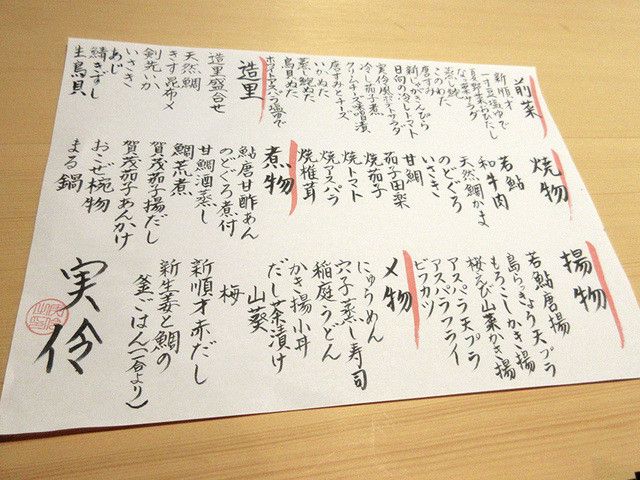 前菜
新順才
一寸豆塩ゆで
夏野菜おひたし
なっ葉サラダ
蒸し鮑
このわた
唐すみ
新じゃがきんぴら
日向の冷しトマト
実伶風ポテトサラダ
冷し茄子煮
クリームチーズ味噌漬
唐すみとチーズ
いかぬた
蒸し鮑ぬた
鳥貝ぬた
ホワイトアスパラ塩ゆで
造里
造里盛合せ
天然鯛
きす昆布〆
剣先いか
いさき
あじ
鯖きずし
生鳥貝
焼物
若鮎
和牛肉
天然鯛かま
のどぐろ
いさき
甘鯛
茄子田楽
焼茄子
焼トマト
焼アスパラ
焼椎茸
煮物
鮎唐甘酢あん
のどぐろ煮付
甘鯛酒蒸し
鯛荒煮
賀茂茄子揚だし
賀茂茄子あんかけ
おこぜ椀物
まる鍋
揚物
若鮎唐揚
島らっきょう天プラ
もろこしかき揚
桜えび山菜かき揚
アスパラ天プラ
アスパラフライ
ビフカツ
〆物
にゅうめん
穴子蒸し寿司
稲庭うどん
かき揚小丼
だし茶漬け
山葵
梅
新順才赤だし
新生姜と鯛の
釜ごはん(一合より)
実伶